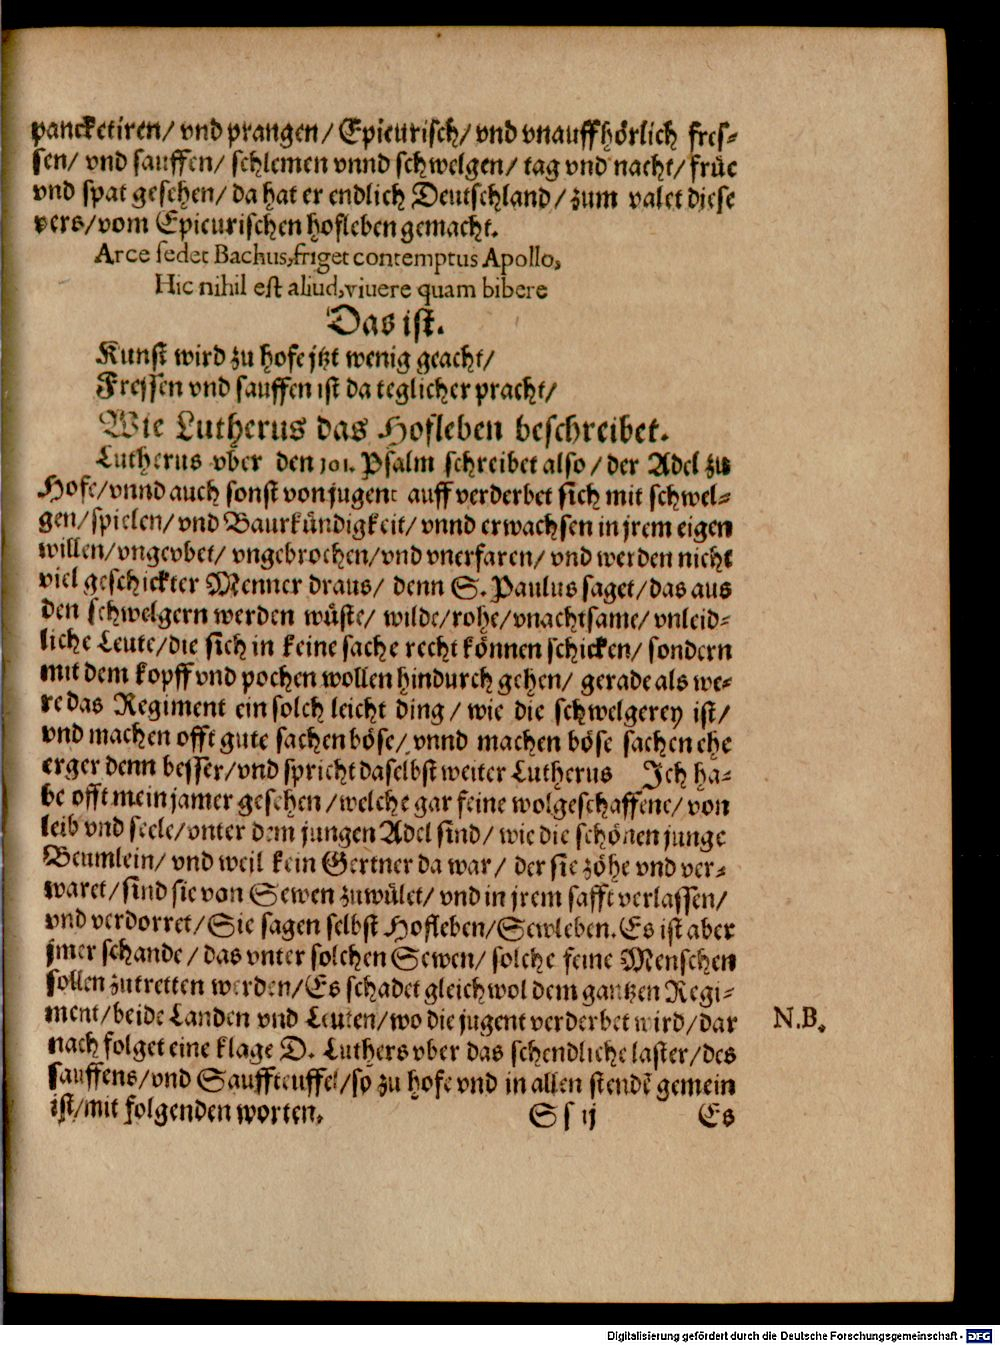 pancketiren/ vnd prangen/ Epicurisch/ vnd vnauffhörlich fres-
sen/ vnd sauffen/ schlemen vnnd schwelgen/ tag vnd nacht/ früe
vnd spat gesehen/ da hat er endlich Deutschland/ zum valet diese
vers/ vom Epicurischen hofleben gemacht.
Arce sedet Bachus, friget contemptus Apollo,
Hic nihil est aliud, viuere quam bibere
Das ist.
Kunst wird zu hofe jtzt wenig geacht/
Fressen vnd sauffen ist da teglicher pracht/
Wie Lutherus das Hofleben beschreibet.
Lutherus vber den 101. Psalm schreibet also/ der Adel zu
Hofe/ vnnd auch sonst von jugent auff verderbet sich mit schwel-
gen/ spielen/ vnd Baurkündigkeit/ vnnd erwachsen in jrem eigen
willen/ vngevbet/ vngebrochen/ vnd vnerfaren/ vnd werden nicht
viel geschickter Menner draus/ denn S. Paulus saget/ das aus
den schwelgern werden wüste/ wilde/ rohe/ vnachtsame/ vnleid-
liche Leute/ die sich in keine sache recht können schicken/ sondern
mit dem kopff vnd pochen wollen hindurch gehen/ gerade als we-
re das Regiment ein solch leicht ding/ wie die schwelgerey ist/
vnd machen offt gute sachen böse/ vnnd machen böse sachen ehe
erger denn besser/ vnd spricht daselbst weiter Lutherus Ich ha-
be offt mein jamer gesehen/ welche gar feine wolgeschaffene/ von
leib vnd seele/ vnter dem jungen Adel sind/ wie die schönen junge
Beumlein/ vnd weil kein Gertner da war/ der sie zöhe vnd ver-
waret/ sind sie von Sewen zuwület/ vnd in jrem safft verlassen/
vnd verdorret/ Sie sagen selbst Hofleben/ Sewleben. Es ist aber
jmer schande/ das vnter solchen Sewen/ solche feine Menschen
sollen zutretten werden/ Es schadet gleichwol dem gantzen Regi-
ment/ beide Landen vnd Leuten/ wo die jugent verderbet wird/ dar
N.B.
nach folget eine klage D. Luthers vber das schendliche laster/ des
sauffens/ vnd Sauffteuffel/ so zu hofe vnd in allen stendẽ gemein
ist/ mit folgenden worten.
Ss ij
Es
Digitalisierung gefördert durch die Deutsche Forschungsgemeinschaft - DFG